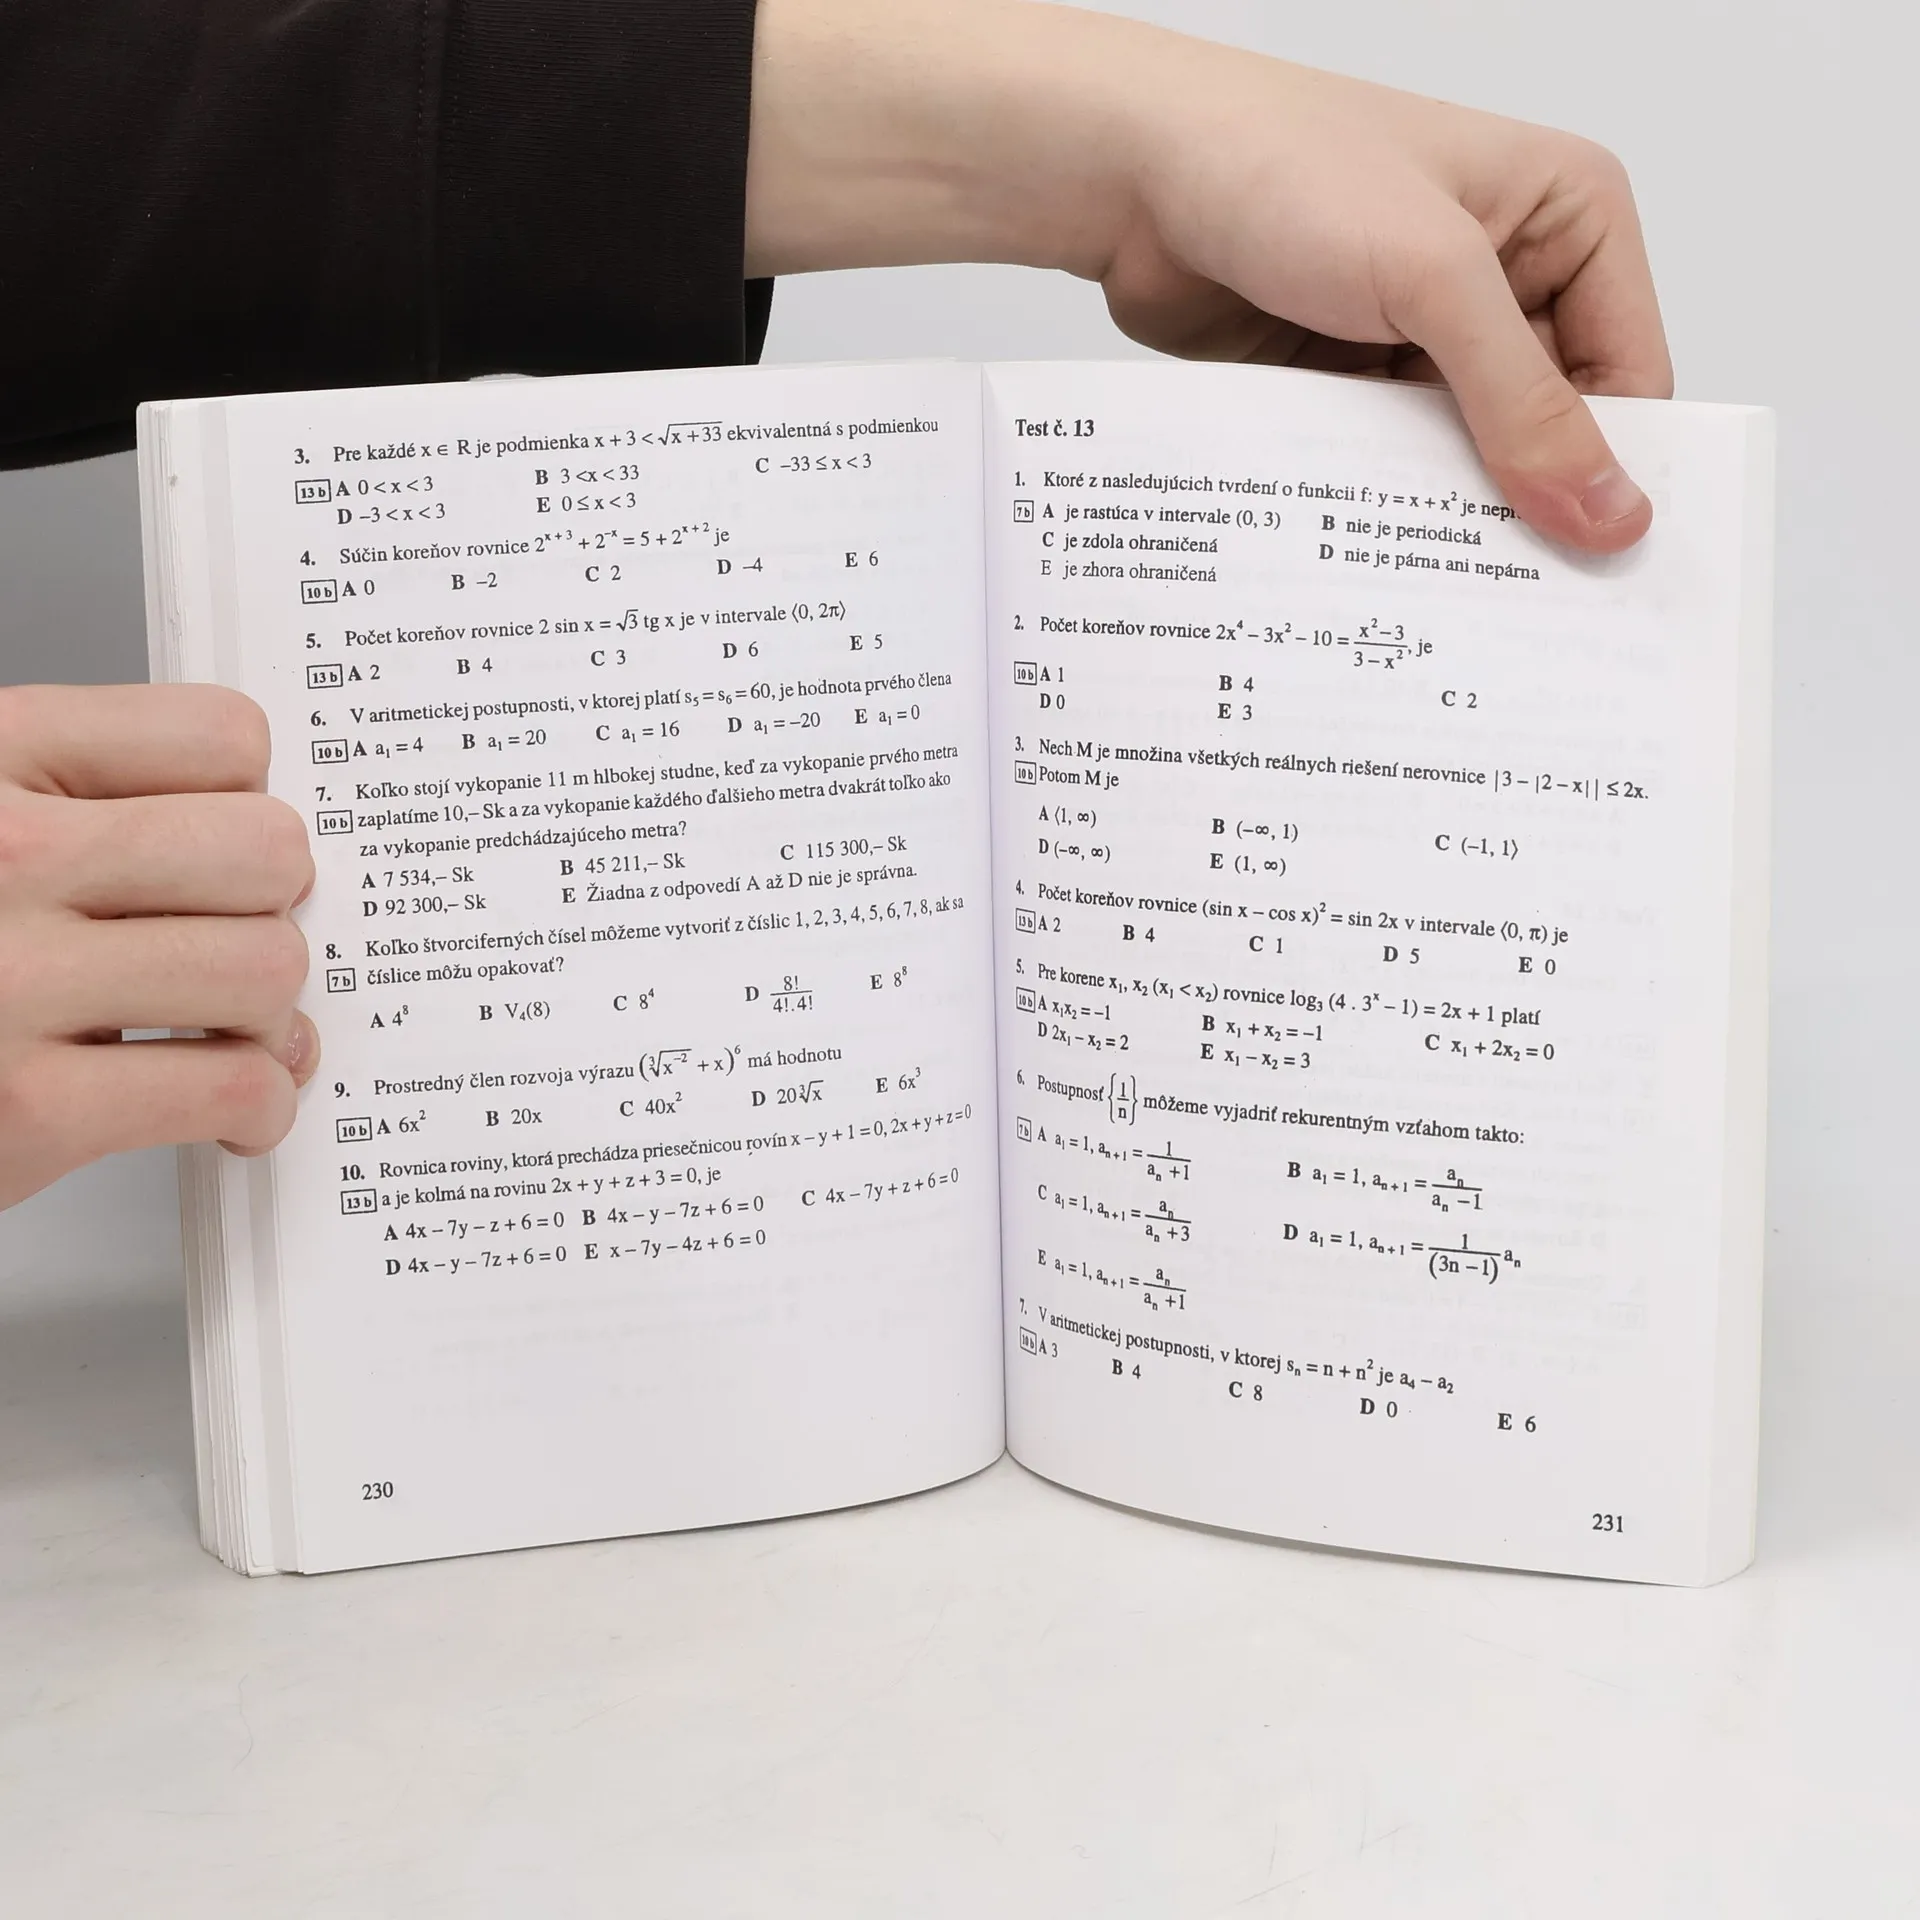 3. Pre každé x ∈ R je podmienka x + 3 < √(x + 33) ekvivalentná s podmienkou
13 b A 0 < x < 3 B 3 < x < 33 C -33 ≤ x < 3
D -3 < x < 3 E 0 ≤ x < 3
4. Súčin koreňov rovnice 2^(x + 3) + 2^(-x) = 5 + 2^(x + 2) je
10 b A 0 B -2 C 2 D -4 E 6
5. Počet koreňov rovnice 2 sin x = √3 tg x je v intervale ⟨0, 2π⟩
13 b A 2 B 4 C 3 D 6 E 5
6. V aritmetickej postupnosti, v ktorej platí s₅ = s₆ = 60, je hodnota prvého člena
10 b A a₁ = 4 B a₁ = 20 C a₁ = 16 D a₁ = -20 E a₁ = 0
7. Koľko stojí vykopanie 11 m hlbokej studne, keď za vykopanie prvého metra
10 b zaplatíme 10,– Sk a za vykopanie každého ďalšieho metra dvakrát toľko ako
za vykopanie predchádzajúceho metra?
A 7 534,– Sk B 45 211,– Sk C 115 300,– Sk
D 92 300,– Sk E Žiadna z odpovedí A až D nie je správna.
8. Koľko štvorciferných čísel môžeme vytvoriť z číslic 1, 2, 3, 4, 5, 6, 7, 8, ak sa
7 b číslice môžu opakovať?
A 4⁸ B V₄(8) C 8⁴ D 8!/(4!.4!) E 8⁸
9. Prostredný člen rozvoja výrazu (∛(x⁻²) + x)⁶ má hodnotu
10 b A 6x² B 20x C 40x² D 20∛x E 6x³
10. Rovnica roviny, ktorá prechádza priesečnicou rovín x – y + 1 = 0, 2x + y + z = 0
13 b a je kolmá na rovinu 2x + y + z + 3 = 0, je
A 4x – 7y – z + 6 = 0 B 4x – y – 7z + 6 = 0 C 4x – 7y + z + 6 = 0
D 4x – y – 7z + 6 = 0 E x – 7y – 4z + 6 = 0
230
Test č. 13
1. Ktoré z nasledujúcich tvrdení o funkcii f: y = x + x² je
7 b A je rastúca v intervale (0, 3) B nie je periodická
C je zdola ohraničená D nie je párna ani nepárna
E je zhora ohraničená
2. Počet koreňov rovnice 2x⁴ – 3x² – 10 = (x² – 3)/(3 – x²), je
10 b A 1 B 4 C 2
D 0 E 3
3. Nech M je množina všetkých reálnych riešení nerovnice |3 – |2 – x|| ≤ 2x.
10 b Potom M je
A ⟨1, ∞) B (–∞, 1) C (–1, 1⟩
D (–∞, ∞) E (1, ∞)
4. Počet koreňov rovnice (sin x – cos x)² = sin 2x v intervale ⟨0, π) je
13 b A 2 B 4 C 1 D 5 E 0
5. Pre korene x₁, x₂ (x₁ < x₂) rovnice log₃ (4 . 3ˣ – 1) = 2x + 1 platí
10 b A x₁x₂ = –1 B x₁ + x₂ = –1 C x₁ + 2x₂ = 0
D 2x₁ – x₂ = 2 E x₁ – x₂ = 3
6. Postupnosť {1/n} môžeme vyjadriť rekurentným vzťahom takto:
7 b A a₁ = 1, aₙ₊₁ = 1/(aₙ + 1) B a₁ = 1, aₙ₊₁ = aₙ/(aₙ – 1)
C a₁ = 1, aₙ₊₁ = aₙ/(aₙ + 3) D a₁ = 1, aₙ₊₁ = 1/(3n – 1) aₙ
E a₁ = 1, aₙ₊₁ = aₙ/(aₙ + 1)
7. V aritmetickej postupnosti, v ktorej sₙ = n + n² je a₄ – a₂
10 b A 3 B 4 C 8 D 0 E 6
231